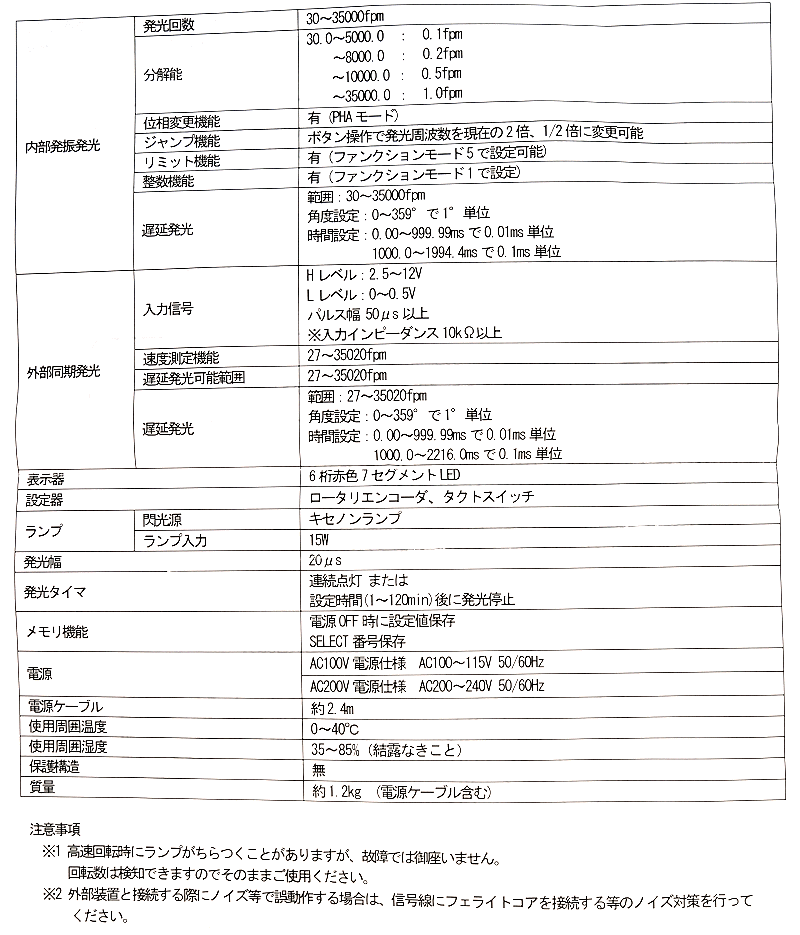 内部発振発光
発光回数
30～35000fpm
分解能
30.0～5000.0 : 0.1fpm
～8000.0 : 0.2fpm
～10000.0 : 0.5fpm
～35000.0 : 1.0fpm
位相変更機能
有（PHAモード）
ジャンプ機能
ボタン操作で発光周波数を現在の2倍、1/2倍に変更可能
リミット機能
有（ファンクションモード5で設定可能）
整数機能
有（ファンクションモード1で設定）
遅延発光
範囲：30～35000fpm
角度設定：0～359°で1°単位
時間設定：0.00～999.99msで0.01ms単位
1000.0～1994.4msで0.1ms単位
外部同期発光
入力信号
Hレベル：2.5～12V
Lレベル：0～0.5V
パルス幅 50μs以上
※入力インピーダンス10kΩ以上
速度測定機能
27～35020fpm
遅延発光可能範囲
27～35020fpm
遅延発光
範囲：27～35020fpm
角度設定：0～359°で1°単位
時間設定：0.00～999.99msで0.01ms単位
1000.0～2216.0msで0.1ms単位
表示器
6桁赤色7セグメントLED
設定器
ロータリエンコーダ、タクトスイッチ
ランプ
閃光源
キセノンランプ
ランプ入力
15W
発光幅
20μs
発光タイマ
連続点灯 または
設定時間(1～120min)後に発光停止
メモリ機能
電源OFF時に設定値保存
SELECT番号保存
電源
AC100V電源仕様 AC100～115V 50/60Hz
AC200V電源仕様 AC200～240V 50/60Hz
電源ケーブル
約2.4m
使用周囲温度
0～40℃
使用周囲湿度
35～85%（結露なきこと）
保護構造
無
質量
約1.2kg （電源ケーブル含む）
注意事項
※1 高速回転時にランプがちらつくことがありますが、故障では御座いません。
回転数は検知できますのでそのままご使用ください。
※2 外部装置と接続する際にノイズ等で誤動作する場合は、信号線にフェライトコアを接続する等のノイズ対策を行って
ください。